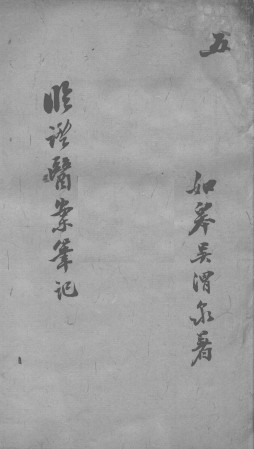 五
如皋吳渭泉著
臨證醫案筆記